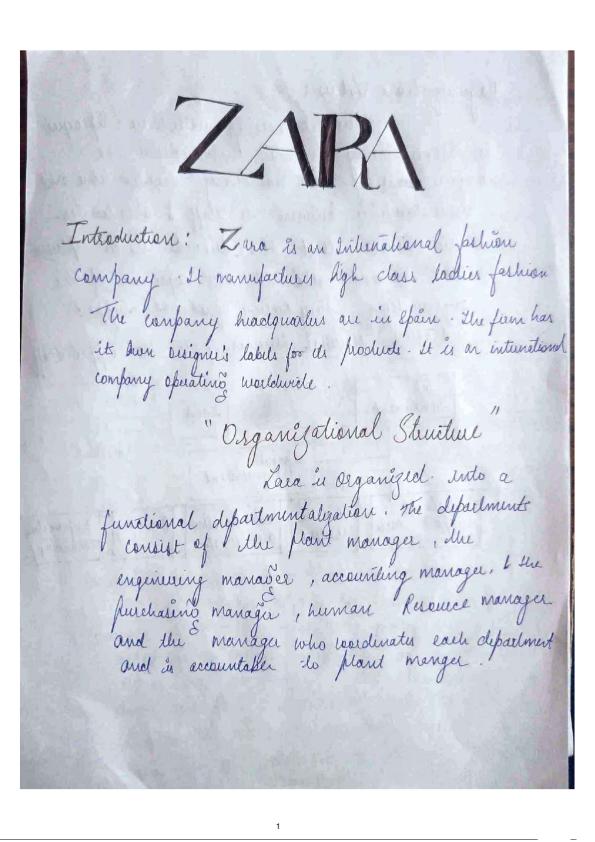 ZARA
Introduction: Zara is an International fashion
company. It manufactures high class ladies fashion
The company headquarters are in Spain. The firm has
its own designer's labels for its products. It is an international
company operating worldwide.
"Organizational Structure"
Zara is organized into a
functional departmentalization. The departments
consist of the plant manager, the
engineering manager, accounting manager, & the
purchasing manager, human Resource manager
and the manager who coordinates each department
and is accountaber to plant manger.
1